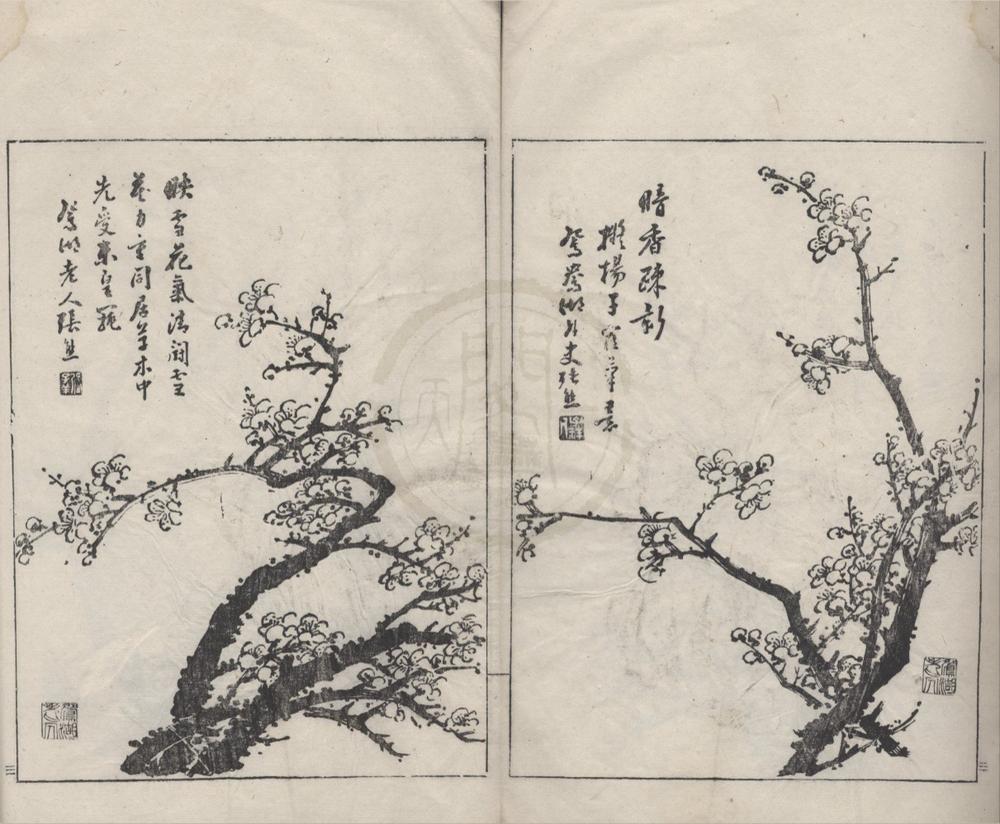 暗香疎影
擬楊子筆
鴛鴦湖外史張熊
映雪花氣清
力重同居草木中
先受東皇寵
鴛湖老人張熊